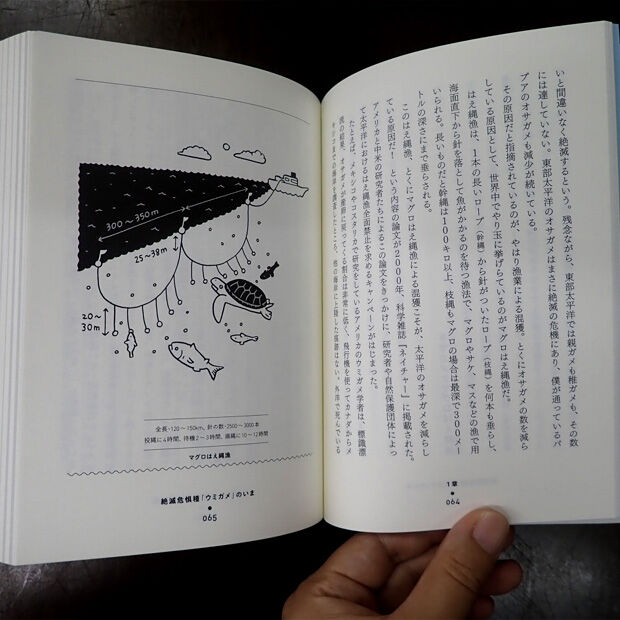 いと間違いなく絶滅するという。残念ながら、東部太平洋では親ガメも稚ガメも、その数
には達していない。東部太平洋のオサガメはまさに絶滅の危機にあり、僕が通っているパ
プアのオサガメも減少が続いている。
その原因だと指摘されているのが、やはり漁業による混獲。とくにオサガメの数を減ら
している原因として、世界中でやり玉に挙げられているのがマグロはえ縄漁だ。
はえ縄漁は、1本の長いロープ（幹縄）から針がついたロープ（枝縄）を何本も垂らし、
海面直下から針を落として魚がかかるのを待つ漁法で、マグロやサケ、マスなどの漁で用
いられる。長いものだと幹縄は100キロ以上、枝縄もマグロの場合は最深で300メー
トルの深さにまで垂らされる。
このはえ縄漁、とくにマグロはえ縄漁による混獲こそが、太平洋のオサガメを減らし
ている原因だ！ という内容の論文が2000年、科学雑誌『ネイチャー』に掲載された。
アメリカと中米の研究者たちによるこの論文をきっかけに、研究者や自然保護団体によっ
て太平洋におけるはえ縄漁全面禁止を求めるキャンペーンがはじまった。
たとえば、メキシコやコスタリカで研究をしているアメリカのウミガメ学者は、標識
の結果、オサガメが産卵に戻ってくる割合は非常に低く、飛行機を使ってカナダからメ
キシコまでの海岸を調査したところ、他の海岸に上陸した痕跡はない。外洋で死んでいる
1章
064
300〜350m
25〜38m
20〜
30m
全長・120〜150km、針の数・2500〜3000本
投縄に4時間、待機2〜3時間、揚縄に10〜12時間
マグロはえ縄漁
絶滅危惧種「ウミガメ」のいま
065